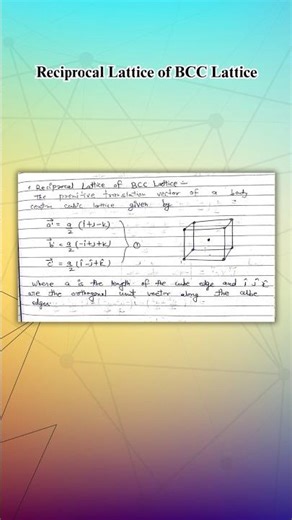 Reciprocal Lattice of BCC Lattice
* Reciprocal Lattice of BCC Lattice :-
The premitive translation vector of a body
centre cubic lattice given by
a⃗ = a/2 (î+ĵ-k̂)
b⃗ = a/2 (-î+ĵ+k̂) ①
c⃗ = a/2 (î-ĵ+k̂)
where a is the length of the cube edge and î ĵ k̂
are the orthogonal unit vector along the cube
edges